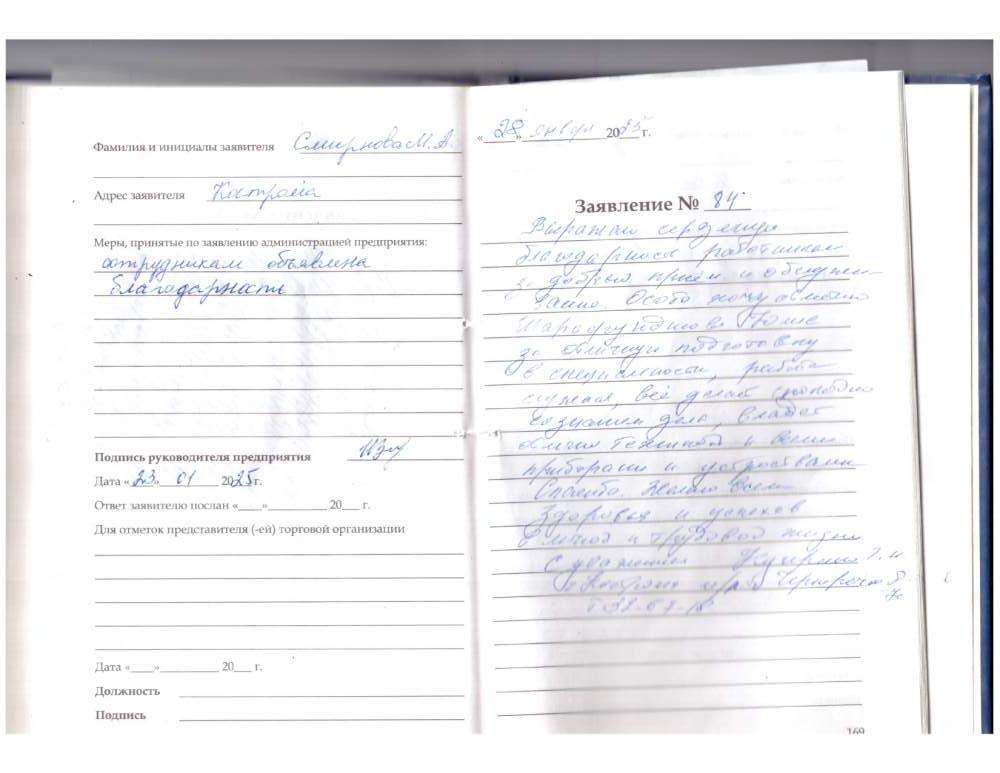 Фамилия и инициалы заявителя Смирнова М. А.
Адрес заявителя Кострома
Меры, принятые по заявлению администрацией предприятия:
сотрудникам объявлена
благодарность
Подпись руководителя предприятия
Дата «23» 01 2025г.
Ответ заявителю послан «___»__________ 20___ г.
Для отметок представителя (-ей) торговой организации
Дата «___»__________ 20___ г.
Должность
Подпись
«28» январ 2025г.
Заявление № 84
Выражаю сердечную
благодарность работникам
за добрый приём и обслужи-
вание. Особо хочу отметить
за отличную подготовку
в специальности, работа
всё делает спокойно
со знанием дела, владеет
техникой и всеми
приборами и устройствами
Спасибо. Желаю всем
Здоровья и успехов
в личной и трудовой жизни
С уважением
г Кострома
169